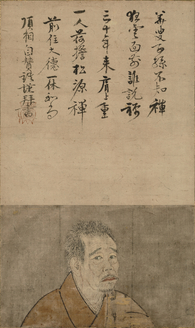 華叟子孫不知禪
狂雲面前誰説禪
三十年来肩上重
一人荷擔松源禪
前住大徳一休和尚
頂相自賛謹拝書